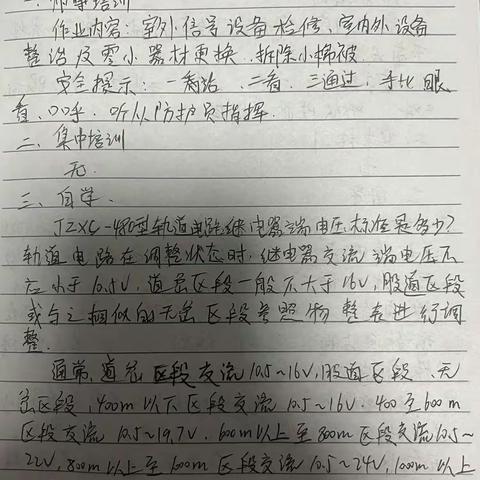 一、师带培训
作业内容：室外信号设备检修、室内外设备
整治及零小器材更换、拆除小棉被
安全提示：一看站、二看、三通过，手比眼
看、口呼，听从防护员指挥.
二、集中培训
无.
三、自学.
JZXC-480型轨道电路继电器端电压标准是多少?
轨道电路在调整状态时,继电器交流端电压不
应小于10.5V,道岔区段一般不大于16V,股道区段
或与之相似的无岔区段参照物整表进行调
整.
通常,道岔区段交流10.5~16V,股道区段、无
岔区段,400m以下区段交流10.5~16V.400至600m
区段交流10.5~19.7V.600m以上至800m区段交流10.5~
22V,800m以上至1000m区段交流10.5~24V,1000m以上